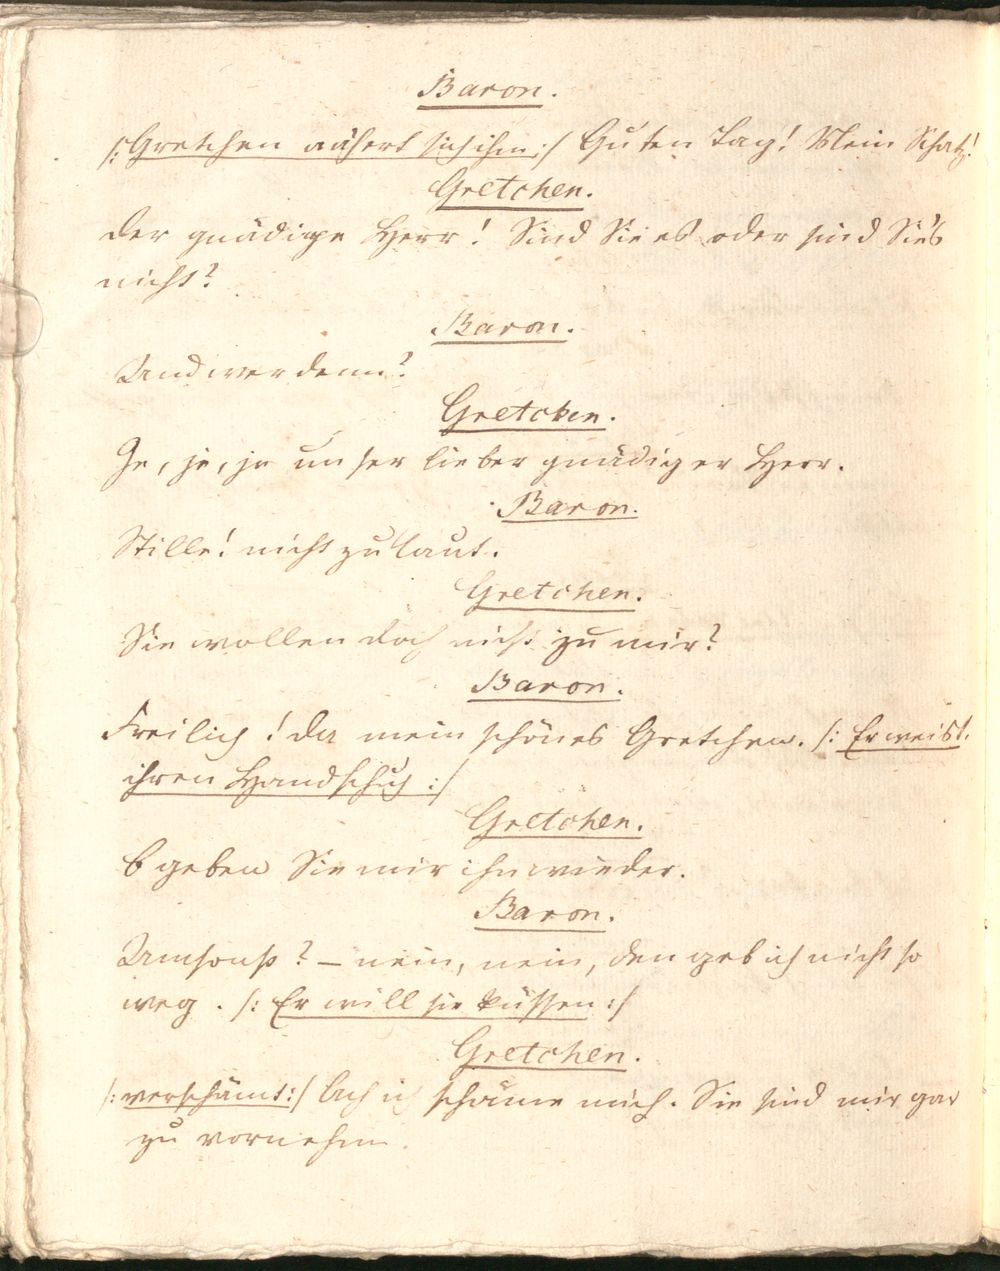 Baron.
/: Gretchen nähert sich ihm :/ Guten Tag! Mein Schatz!
Gretchen.
Der gnädige Herr! Sind Sie es oder sind Sie's
nicht?
Baron.
Und wer denn?
Gretchen.
Je, je, je unser lieber gnädiger Herr.
Baron.
Stille! nicht zu laut.
Gretchen.
Sie wollen doch nicht zu mir?
Baron.
Freilich! Da mein schönes Gretchen. /: Er weist
ihren Handschuh :/
Gretchen.
O geben Sie mir ihn wieder.
Baron.
Umsonst? – nein, nein, den geb ich nicht so
weg. /: Er will sie küssen :/
Gretchen.
/: verschämt :/ Ach ich schäme mich. Sie sind mir gar
zu vornehm.